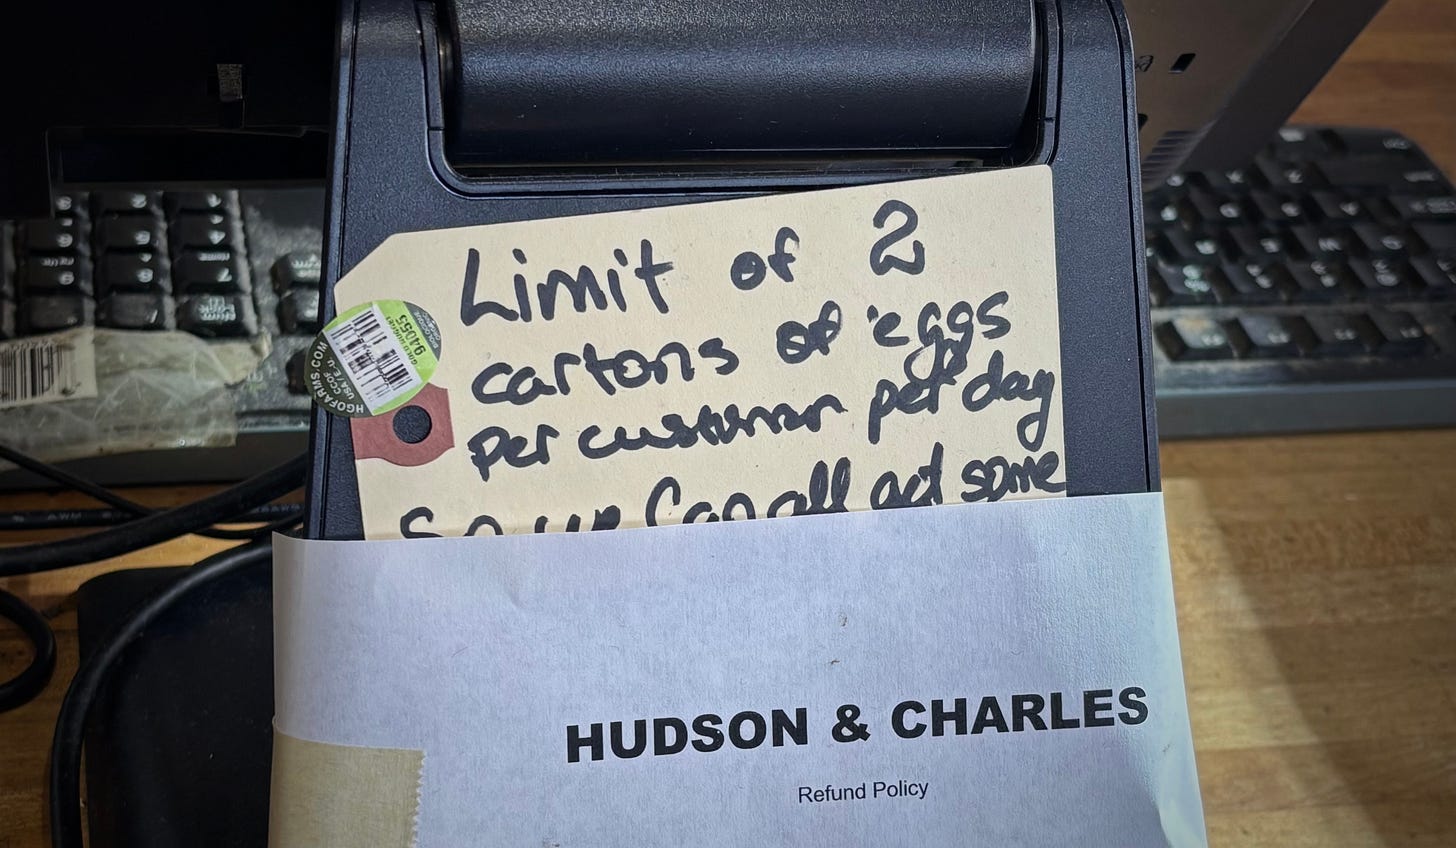 Limit of 2
cartons of eggs
per customer per day
So we can all get some
HGOFARMS.COM
CCOF
94055
HUDSON & CHARLES
Refund Policy